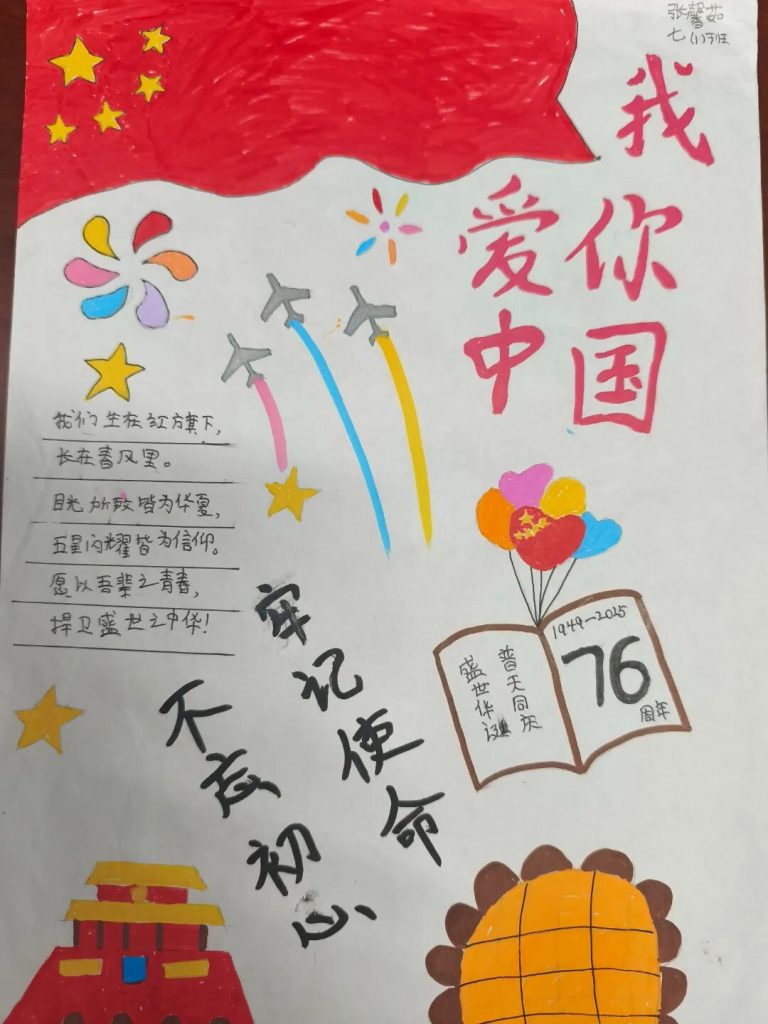 张馨茹
七(1)班
我
爱你
中国
我们生在红旗下，
长在春风里。
目光所致皆为华夏，
五星闪耀皆为信仰。
愿以吾辈之青春，
捍卫盛世之中华！
不忘初心
牢记使命
普天同庆
盛世华诞
1949~2025
76
周年